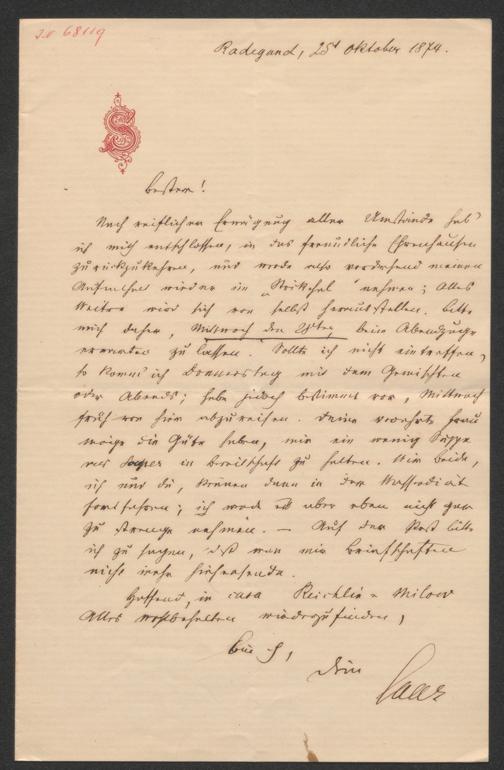 I.N 68119
Radegund, 25t Oktober 1874.
S
Bester!
Nach reiflicher Erwägung aller Umstände hab'
ich mich entschlossen, in das freundliche Ehrenhausen
zurückzukehren, und werde also vorderhand meinen
Aufenthalt wieder im nehmen; Alles
Weitere wird sich von selbst herausstellen. Bitte
mich daher, Mittwoch den 28ten, beim Abendzuge
erwarten zu lassen. Sollte ich nicht eintreffen,
so komm' ich Donnerstag mit dem Gemischten
oder Abends; habe jedoch bestimmt vor, Mittwoch
früh von hier abzureisen. Deine verehrte Frau
möge die Güte haben, mir ein wenig Suppe
in Bereitschaft zu halten. Wir beide,
ich und du, können dann in der Wasserdiät
fortfahren; ich werde es aber eben nicht gar
zu strenge nehmen. — Auf der Post bitte
ich zu sagen, daß man mir Briefschaften
nicht mehr hieher sende.
Hoffend, in casa Reichlin - Milow
Alles wohlbehalten wiederzufinden,
bin ich,
Dein
Saar